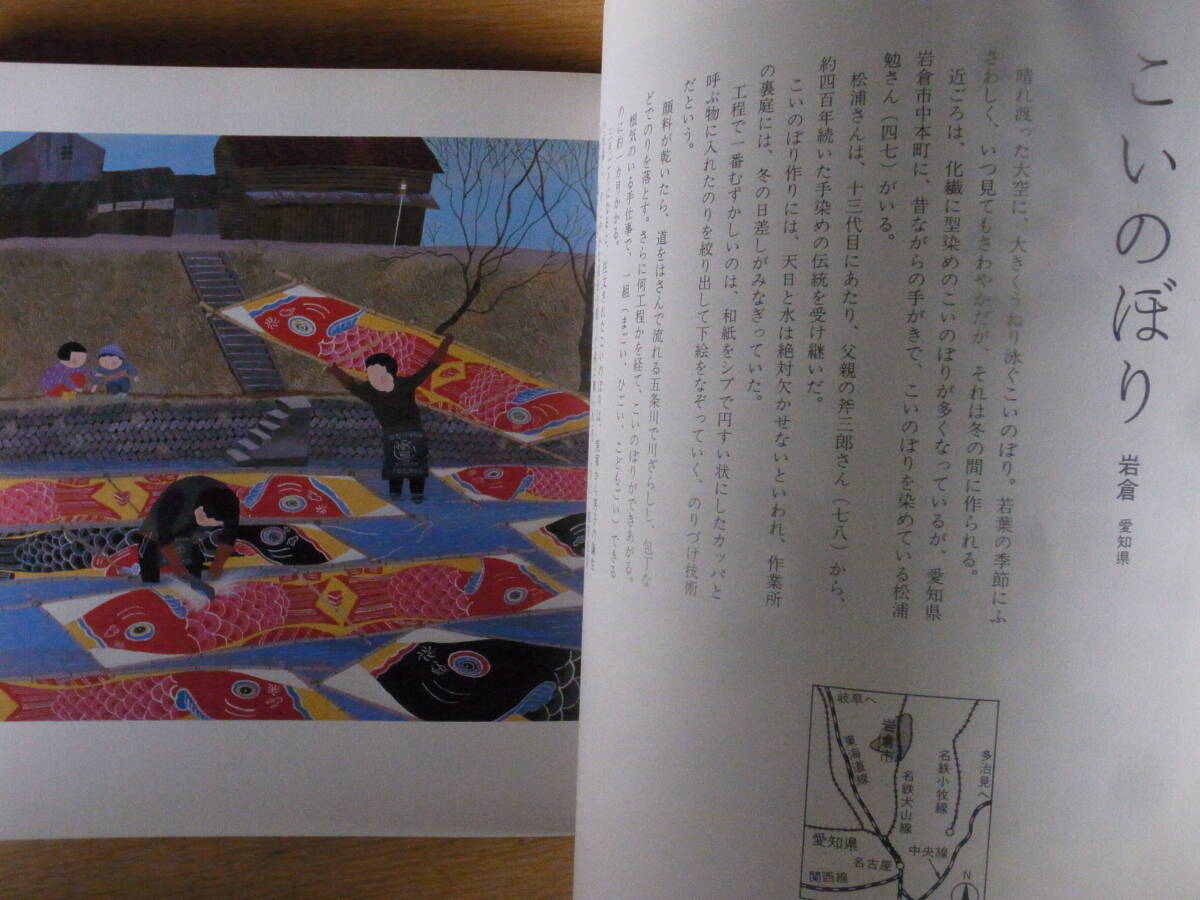 こいのぼり
岩倉 愛知県
晴れ渡った大空に、大きくうねり泳ぐこいのぼり。若葉の季節にふ
さわしく、いつ見てもさわやかだが、それは冬の間に作られる。
近ごろは、化繊に型染めのこいのぼりが多くなっているが、愛知県
岩倉市中本町に、昔ながらの手がきで、こいのぼりを染めている松浦
勉さん（四七）がいる。
松浦さんは、十三代目にあたり、父親の斧三郎さん（七八）から、
約四百年続いた手染めの伝統を受け継いだ。
こいのぼり作りには、天日と水は絶対欠かせないといわれ、作業所
の裏庭には、冬の日差しがみなぎっていた。
工程で一番むずかしいのは、和紙をシブで円すい状にしたカッパと
呼ぶ物に入れたのりを絞り出して下絵をなぞっていく、のりづけ技術
だという。
顔料が乾いたら、道をはさんで流れる五条川で川ざらしし、包丁な
どでのりを落とす。さらに何工程かを経て、こいのぼりができあがる。
根気のいる手仕事で、一組（まごい、ひごい、こどもごい）できる
のに約一カ月かかる。
岐阜へ
岩倉市
東海道線
名鉄犬山線
名鉄小牧線
多治見へ
愛知県
名古屋
中央線
関西線
N